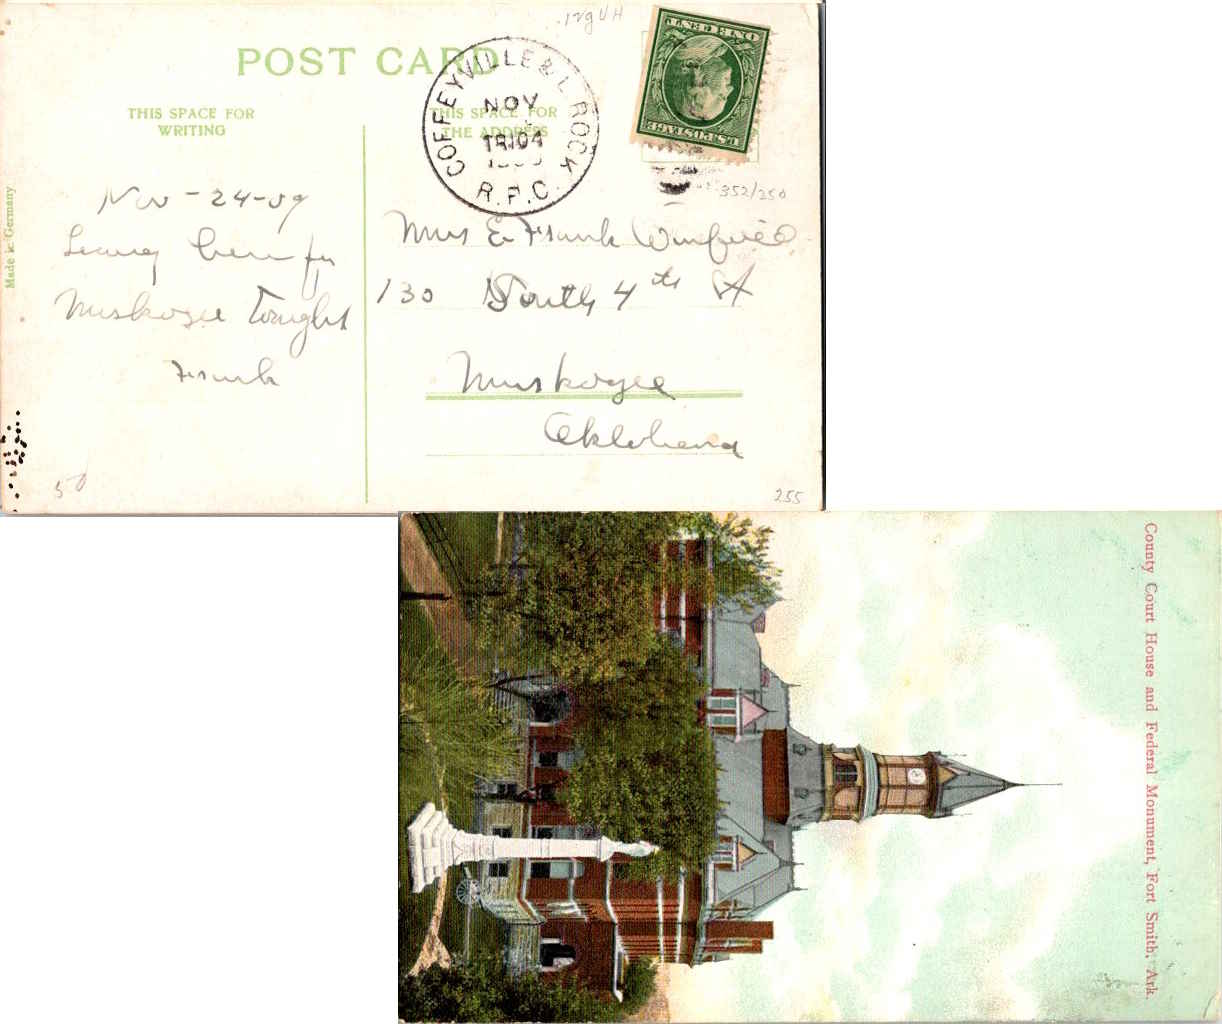 POST CARD
THIS SPACE FOR
WRITING
THIS SPACE FOR
THE ADDRESS
COFFEYVILLE & L. ROCK
NOV
TR104
R.P.O.
ONE CENT
U.S. POSTAGE
352/250
Made in Germany
Nov - 24 - 09
Leaving here for
Muskogee Tonight
Frank
Mrs E Frank Winfield
130 South 4th St
Muskogee
Oklahoma
50
255
County Court House and Federal Monument, Fort Smith, Ark.